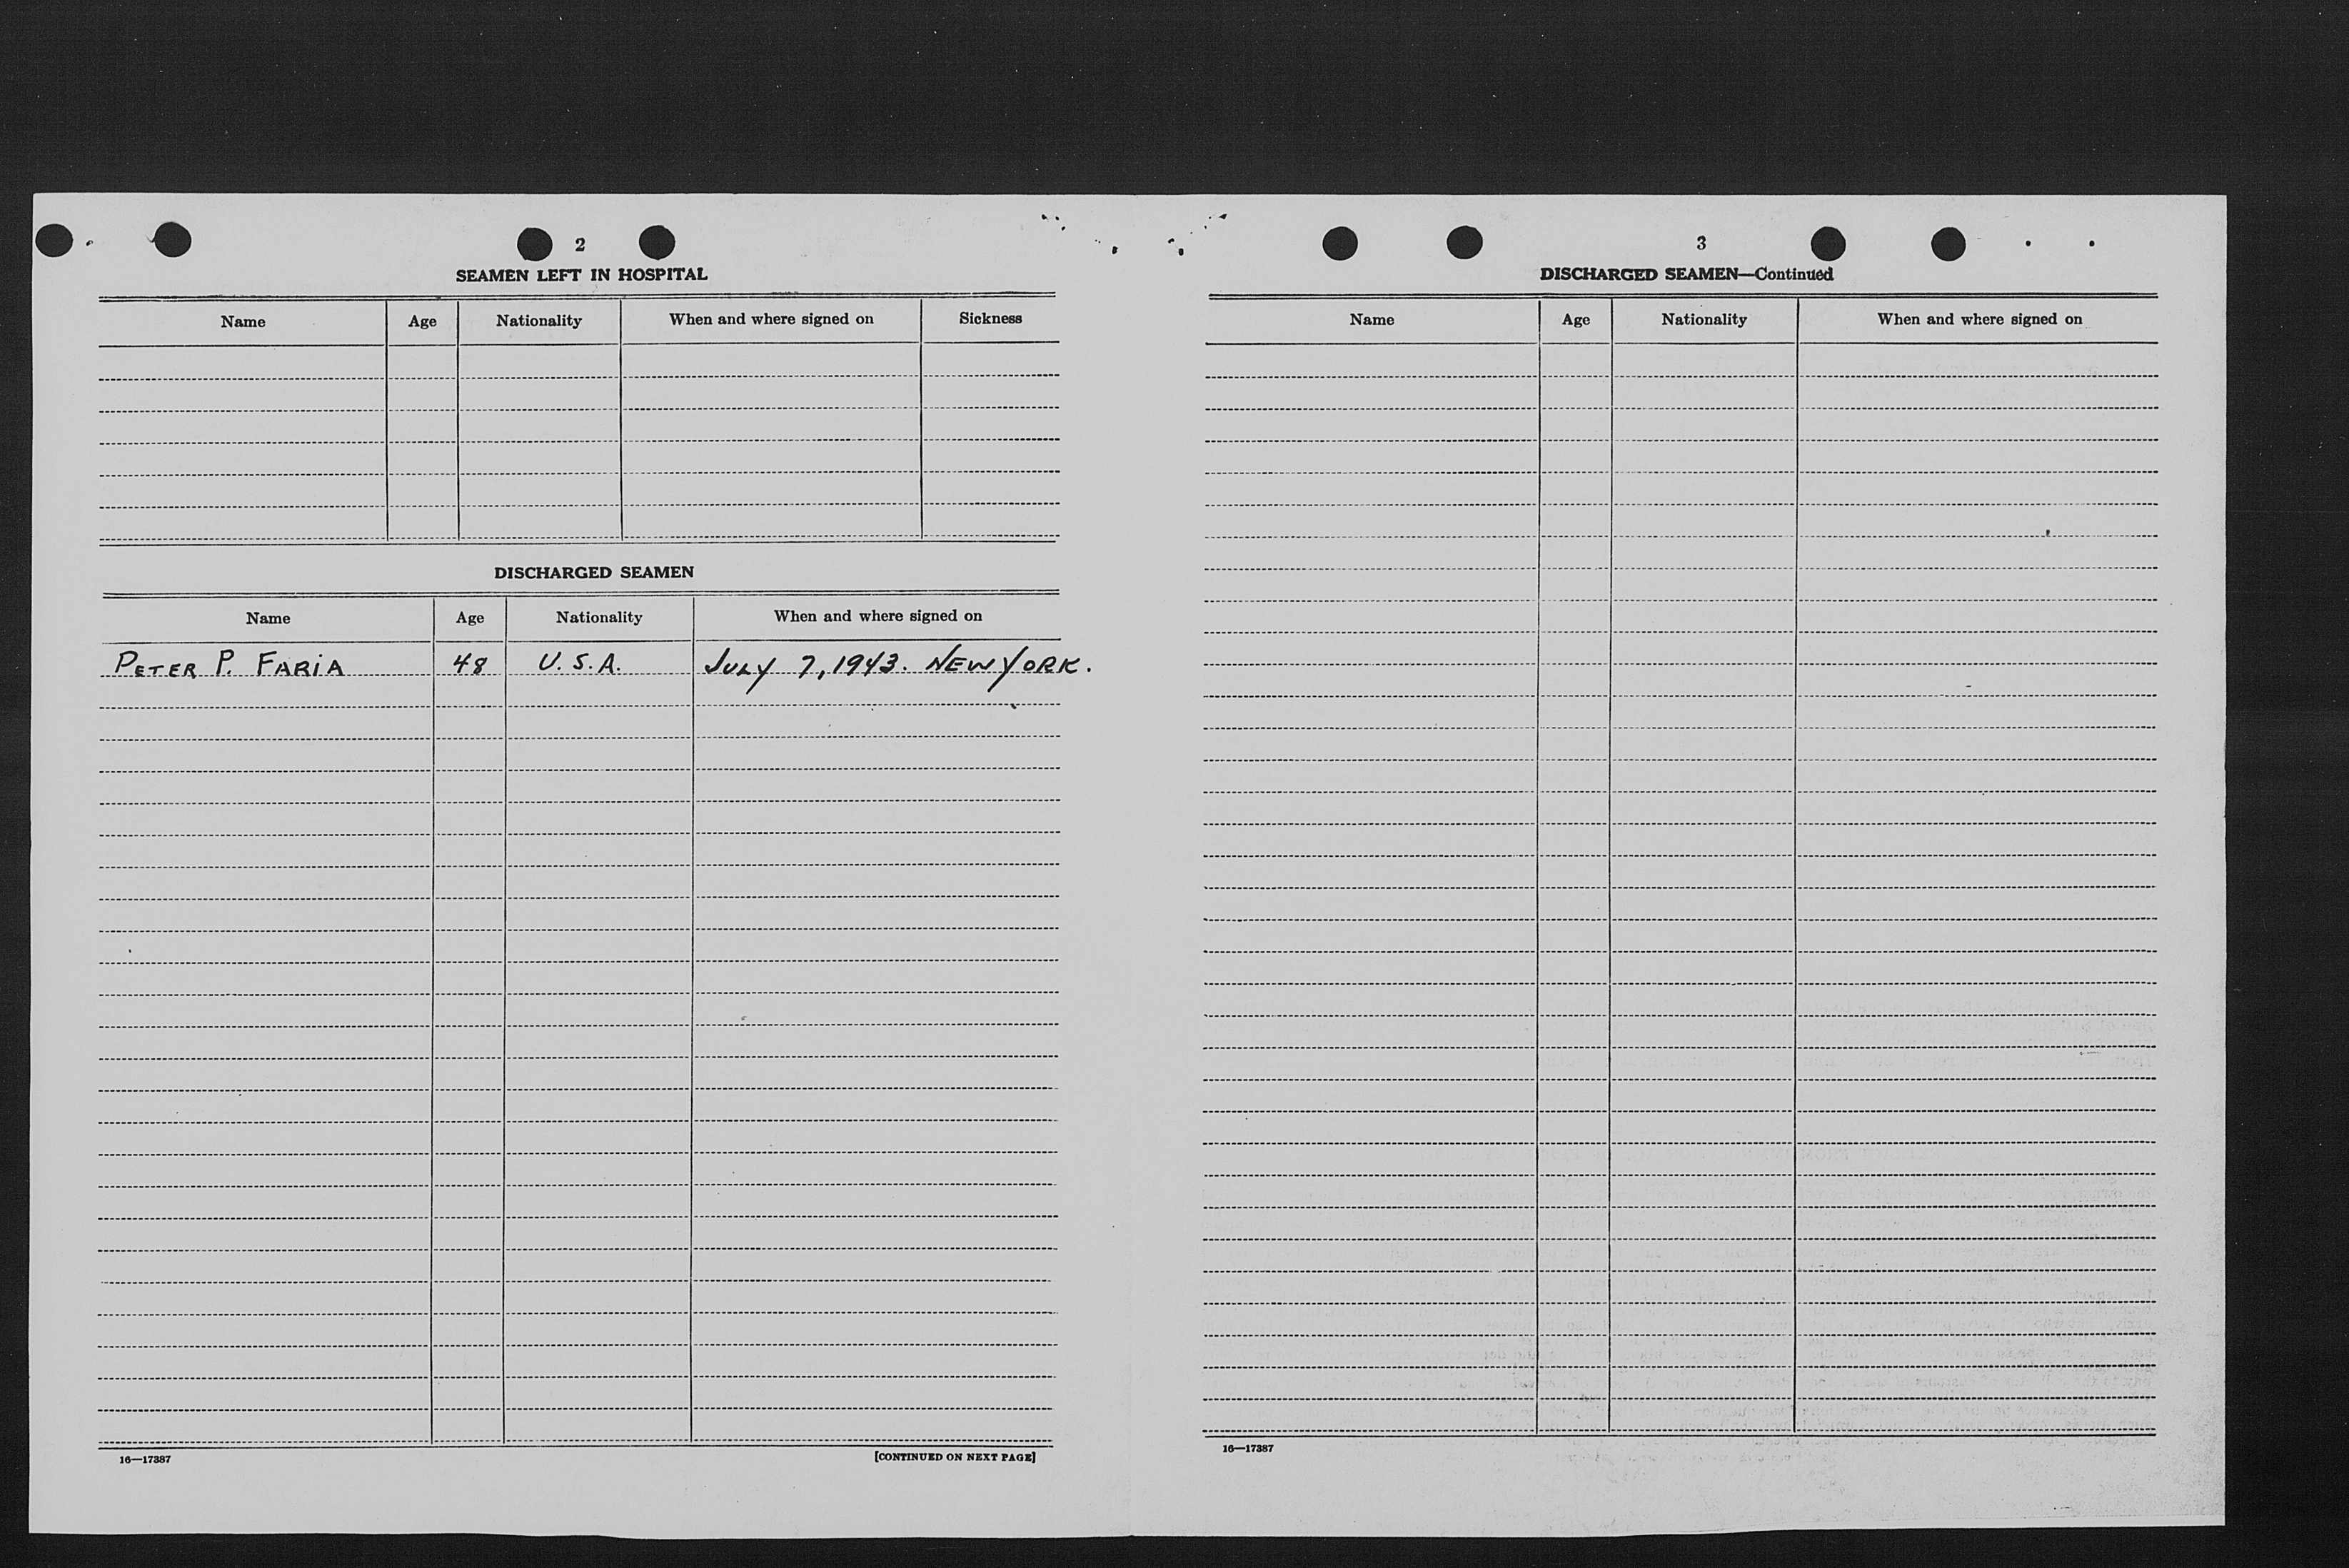 2
SEAMEN LEFT IN HOSPITAL
Name Age Nationality When and where signed on Sickness
DISCHARGED SEAMEN
Name Age Nationality When and where signed on
PETER P. FARIA 48 U.S.A. JULY 7, 1943. NEW YORK.
16—17387 [CONTINUED ON NEXT PAGE]
3
DISCHARGED SEAMEN—Continued
Name Age Nationality When and where signed on
16—17387